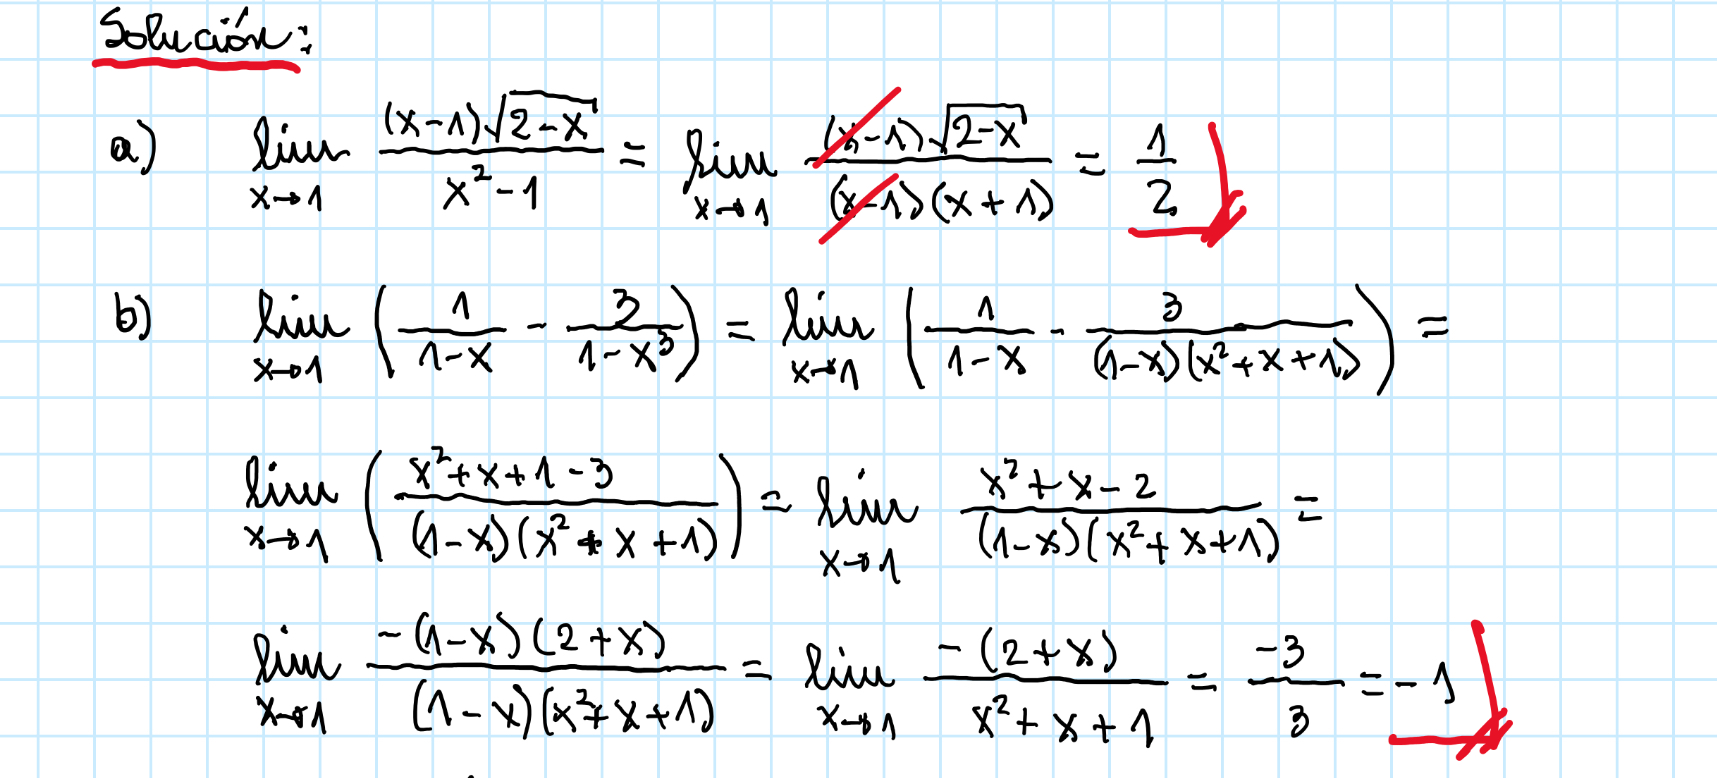 Solución:
a) lim x→1 (x-1)√(2-x) / (x²-1) = lim x→1 (x-1)√(2-x) / ((x-1)(x+1)) = 1/2
b) lim x→1 (1/(1-x) - 3/(1-x³)) = lim x→1 (1/(1-x) - 3/((1-x)(x²+x+1))) =
lim x→1 ((x²+x+1-3) / ((1-x)(x²+x+1))) = lim x→1 (x²+x-2) / ((1-x)(x²+x+1)) =
lim x→1 -(1-x)(2+x) / ((1-x)(x²+x+1)) = lim x→1 -(2+x) / (x²+x+1) = -3/3 = -1